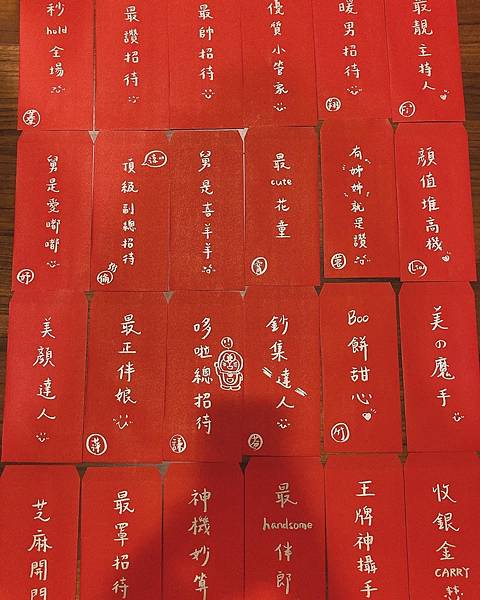 秒
hold
全場
最讚招待
最帥招待
優質小管家
暖男招待
翔
最靚主持人
舅是愛嘟嘟
妤
頂級副總招待
這山
倫
舅是喜羊羊
最
cute
花童
有姊姊就是讚
顏值堆高機
Lian
美顏達人
最正伴娘
萍
哆啦總招待
謙
鈔集達人
Boo
餅甜心
竹
美の魔手
芝麻開門
最罩招待
神機妙算
最
handsome
伴郎
王牌神攝手
收銀金
CARRY